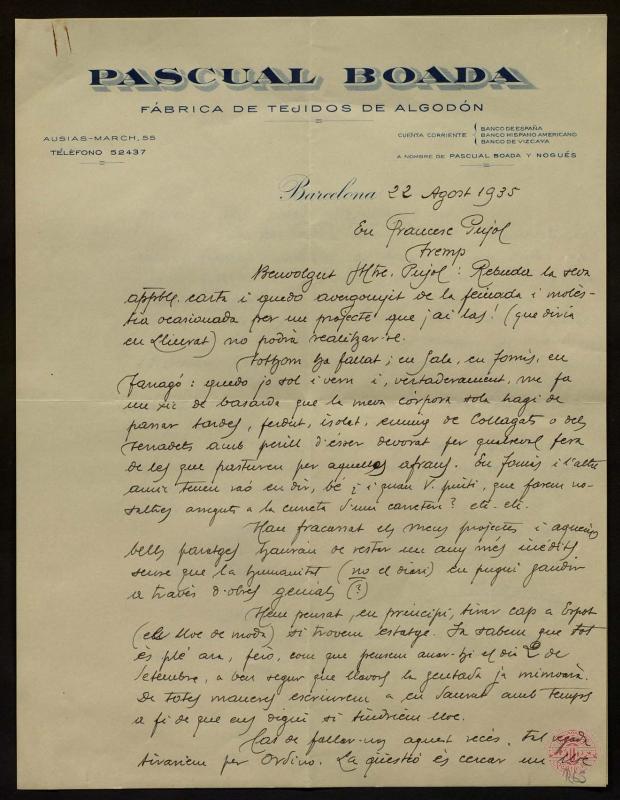 PASCUAL BOADA
FÁBRICA DE TEJIDOS DE ALGODÓN
AUSIAS-MARCH, 55
TELÉFONO 52437
CUENTA CORRIENTE
BANCO DE ESPAÑA
BANCO HISPANO AMERICANO
BANCO DE VIZCAYA
A NOMBRE DE PASCUAL BOADA Y NOGUÉS
Barcelona 22 Agost 1935
En Francesc Pujol
Tremp
Benvolgut Mtre. Pujol: Rebuda la seva
carta i quedo avergonyit de la feinada i molès-
tia ocasionada per un projecte que jai las! (que diria
en Llieurat) no podrà realitzar-se.
Tothom ha fallat; en Gale, en Jomis, en
Farragó: quedo jo sol i vern i, vertaderament, me fa
un xic de basarda que la meva còrpora sola hagi de
passar tardes, perdut, isolat, enmig de Collagats o dels
senadets amb perill d'ésser devorat per qualsevol fera
de les que pasturen per aquells afraus. En Jomis i l'altre
amic tenen raó en dir, bé i quan V. punti, que farem no-
saltres a la cuneta d'una carretera? etc. etc.
Han fracassat els meus projectes i aqueixos
bells paratges hauran de restar un any més inèdits
sense que la humanitat (no el diari) en pugui gaudir
a través d'obres genials (?)
Hem pensat, en principi, tirar cap a Espot
(lloc de moda) si trovem estatge. Ja sabem que tot
és ple ara, però, com que pensem anar-hi el dia 2 de
Setembre, a ben segur que llavors la gentada ja minvarà.
De totes maneres escriurem a en Saurat amb temps
a fi de que ens digui si tindríem lloc.
Cas de fallar-nos aquest recés, tal vegada
tirariem per Ordino. La qüestió és cercar un lloc